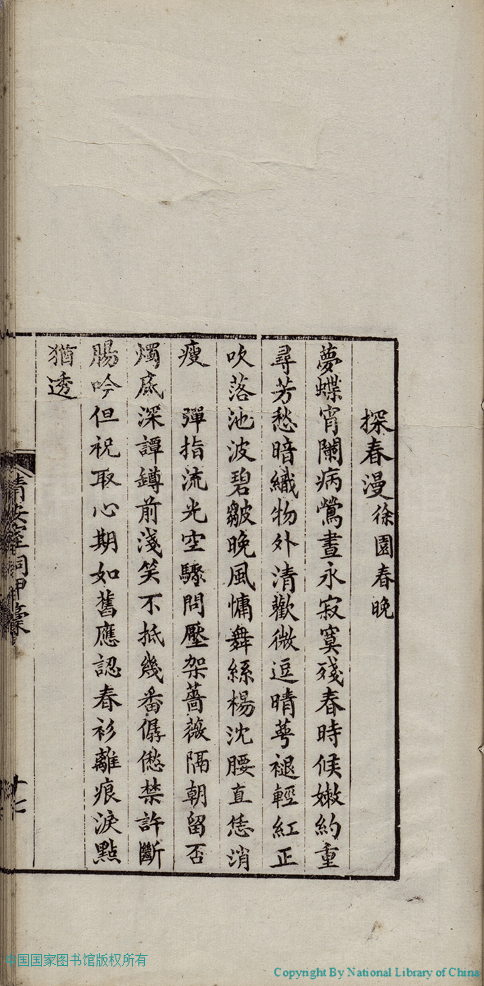 探春漫徐園春晚
夢蝶宵闌病鶯晝永寂寞殘春時候嫩約重
尋芳愁暗織物外清歡微逗晴萼褪輕紅正
吹落池波碧皺晚風慵舞絲楊沈腰直恁消
瘦　彈指流光空驟問壓架薔薇隔朝留否
燭底深譚鐏前淺笑不抵幾番僝僽禁許斷
腸吟但祝取心期如舊應認春衫離痕淚點
猶透
十七
中国国家图书馆版权所有
Copyright By National Library of China